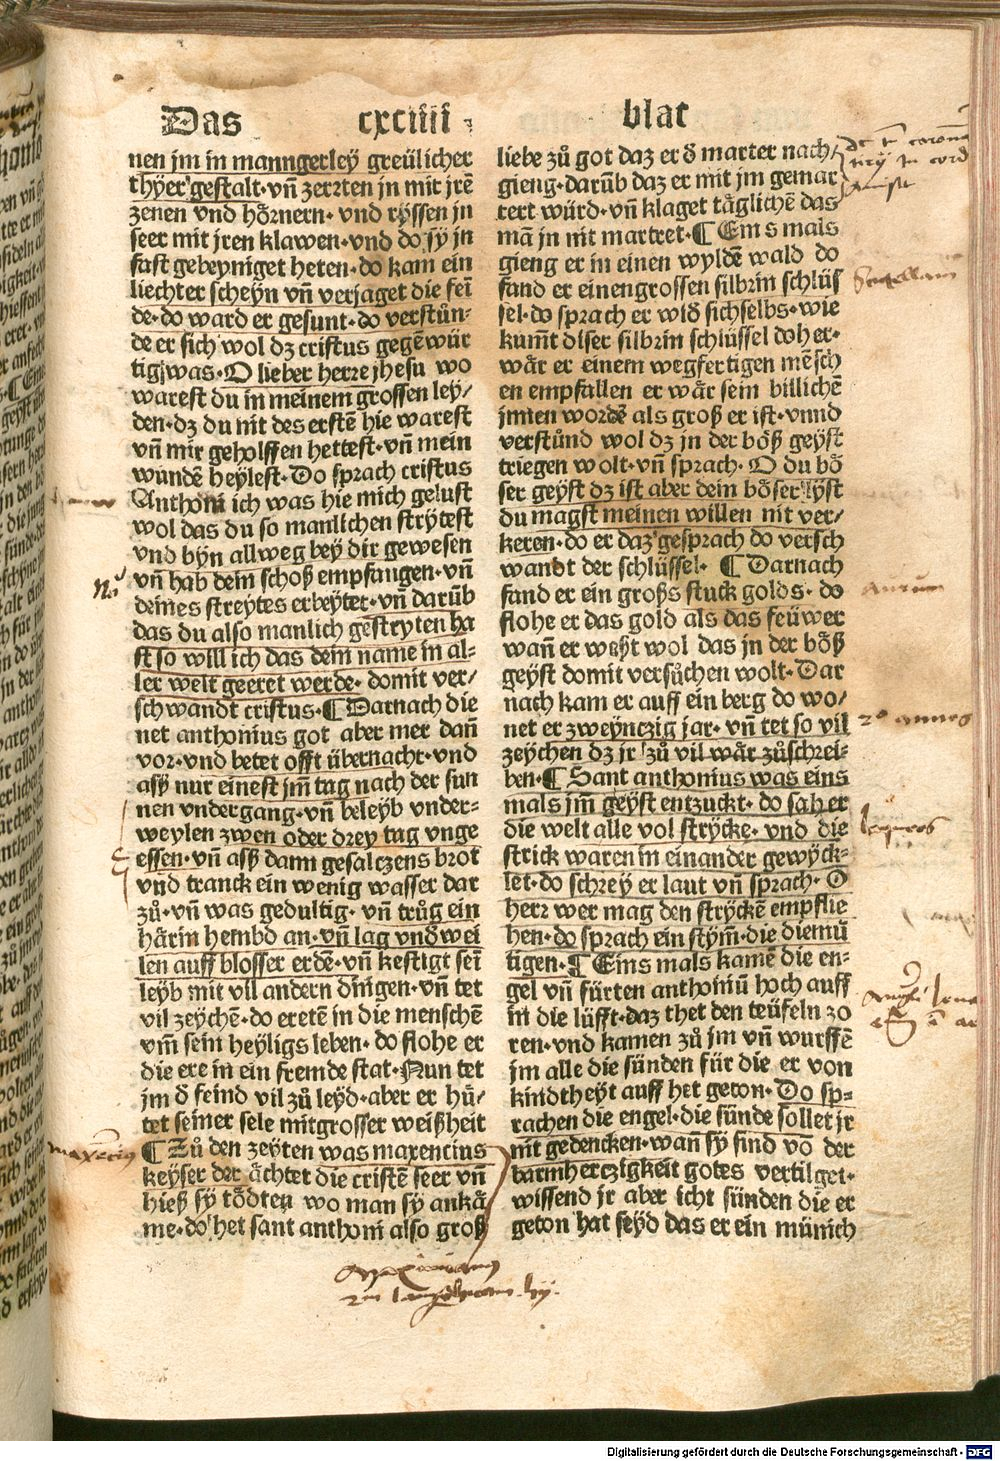 Das cxciiii blat
nen jm in manngerley greülicher
thÿer gestalt·vñ zerzten jn mit jrē
zenen vnd hörnern·vnd ryssen jn
seer mit jren klawen·vnd do sÿ jn
fast gebeyniget heten·do kam ein
liechter scheÿn vñ verjaget die feī
de·do ward er gesunt·do verstůn⸗
de er sich wol dz cristus gegēwür
tig was·O lieber herre jhesu wo
warest du in meinem grossen ley/
den·dz du nit des erstē hie warest
vñ mir geholffen hettest·vñ mein
wundē heylest·Do sprach cristus
Anthoni ich was hie mich gelust
wol das du so manlichen strÿtest
vnd byn allweg bey dir gewesen
vñ hab dein schoß empfangen·vñ
deines streytes erbeytet·vñ darūb
das du also manlich gestryten ha
st so will ich das dein name in al⸗
ler welt geeret werde·domit ver/
schwandt cristus·¶Darnach die
net anthonius got aber mer dañ
vor·vnd betet offt übernacht·vnd
aß nur einest jm̄ tag nach der sun
nen vndergang·vñ beleyb vnder⸗
weylen zwen oder drey tag vnge
essen·vñ aß dann gesalczens brot
vnd tranck ein wenig wasser dar
zů·vñ was gedultig·vñ trůg ein
härin hembd an·vñ lag vnd̄ wei
len auff blosser erdē·vñ kestigt seī
leyb mit vil andern dingen·vñ tet
vil zeychē·do eretē in die menschē
vm̄ sein heyligs leben·do flohe er
die ere in ein fremde stat·Nun tet
jm d̄ feind vil zů leyd·aber er hü⸗
tet seiner sele mit grosser weißheit
¶Zů den zeyten was maxencius
keyser der ächtet die cristē seer vñ
hieß sy tödten wo man sy ankä
me·do het sant anthoni also groß
liebe zů got daz er d̄ marter nach
gieng·darūb daz er mit jm gemar
tert würd·vñ klaget täglichē das
mā jn nit martret·¶Eins mals
gieng er in einen wyldē wald do
fand er einen grossen silbrin schlüs
sel·do sprach er wid̄ sich selbs·wie
kum̄t diser silbrin schlüssel do her·
wär er einem wegfertigen mēsch
en empfallen er wär sein billichē
jnnen wordē als groß er ist·vnnd
verstůnd wol dz jn der böß geyst
triegen wolt·vñ sprach·O du bö
ser geyst dz ist aber dein böser lÿst
du magst meinen willen nit ver/
keren·do er daz gesprach do versch
wandt der schlüssel·¶Darnach
fand er ein großs stuck golds·do
flohe er das gold als das feüwer
wañ er weßt wol das jn der böß
geyst domit versůchen wolt·Dar
nach kam er auff ein berg do wo/
net er zweynczig jar·vñ tet so vil
zeychen dz jr zů vil wär zůschrei⸗
ben·¶Sant anthonius was eins
mals jm̄ geyst entzuckt·do sah er
die welt alle vol strÿcke·vnd die
strick waren in einander gewÿck⸗
let·do schrey er laut vñ sprach·O
herr wer mag den strÿckē empflie
hen·do sprach ein stÿm̄·die diemů
tigen·¶Eins mals kamē die en⸗
gel vñ fürten anthoniū hoch auff
in die lüfft·daz thet den teüfeln zo
ren·vnd kamen zů jm vñ wurffē
jm alle die sünden für die er von
kindtheyt auff het geton·Do sp⸗
rachen die engel·die sünde sollet jr
nit gedencken·wañ sÿ sind vō der
barmherczigkeit gotes vertilget·
wissend jr aber icht sünden die er
geton hat seyd das er ein münich
Aurum
20 annos
laqueos
maxēcius